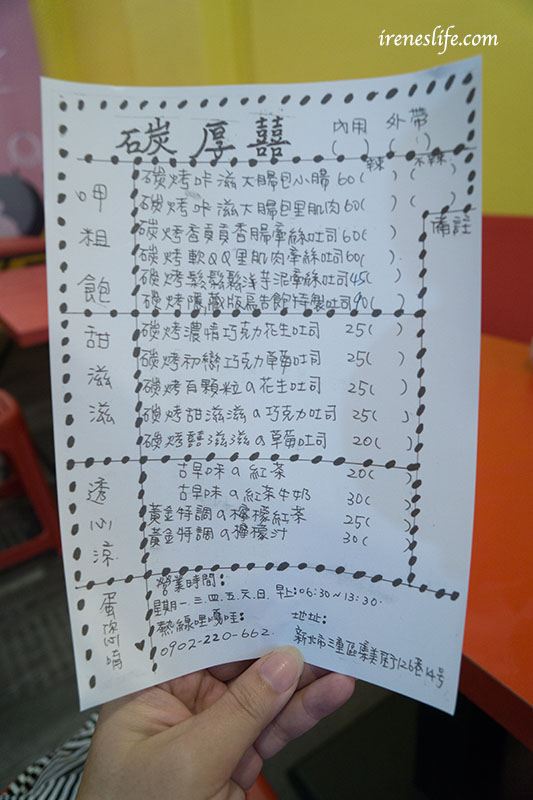 ireneslife.com
碳厚囍
內用 外帶
( ) ( )
辣 不辣
呷粗飽
碳烤咔滋大腸包小腸 60( ) ( )
碳烤咔滋大腸包里肌肉 60( ) ( )
碳烤香貢貢香腸牽絲吐司 60( )
碳烤軟QQ里肌肉牽絲吐司 60( )
碳烤鬆鬆鬆洋芋泥牽絲吐司 45( )
碳烤隱藏版馬告飽特製吐司 90( )
備註
甜滋滋
碳烤濃情巧克力花生吐司 25( )
碳烤初戀巧克力草莓吐司 25( )
碳烤有顆粒a花生吐司 25( )
碳烤甜滋滋a巧克力吐司 25( )
碳烤囍滋滋a草莓吐司 20( )
透心涼
古早味a紅茶 20( )
古早味a紅茶牛奶 30( )
黃金特調a檸檬紅茶 25( )
黃金特調a檸檬汁 30( )
營業時間:
星期一.三.四.五.六.日.早上:06:30~13:30.
熱線哩嘎哇:
0902-220-662.
地址:
新北市三重區集美街126巷14號